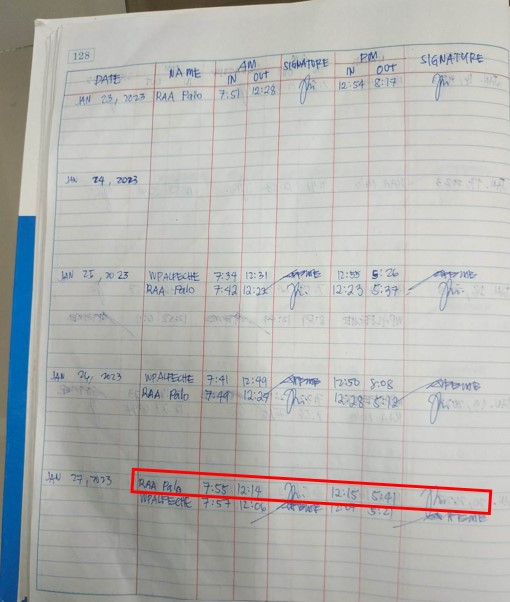 128
DATE NAME AM IN OUT SIGNATURE PM IN OUT SIGNATURE
JAN 23, 2023 RAA Palo 7:51 12:28 12:54 8:17
JAN 24, 2023
JAN 25, 2023 WPALFECHE 7:34 12:31 12:35 5:26
RAA Palo 7:42 12:22 12:23 5:37
JAN 26, 2023 WPALFECHE 7:41 12:49 12:50 8:08
RAA Palo 7:49 12:27 12:28 5:12
JAN 27, 2023 RAA Palo 7:55 12:14 12:15 5:41
WPALFECHE 7:57 12:06 12:07 5:21